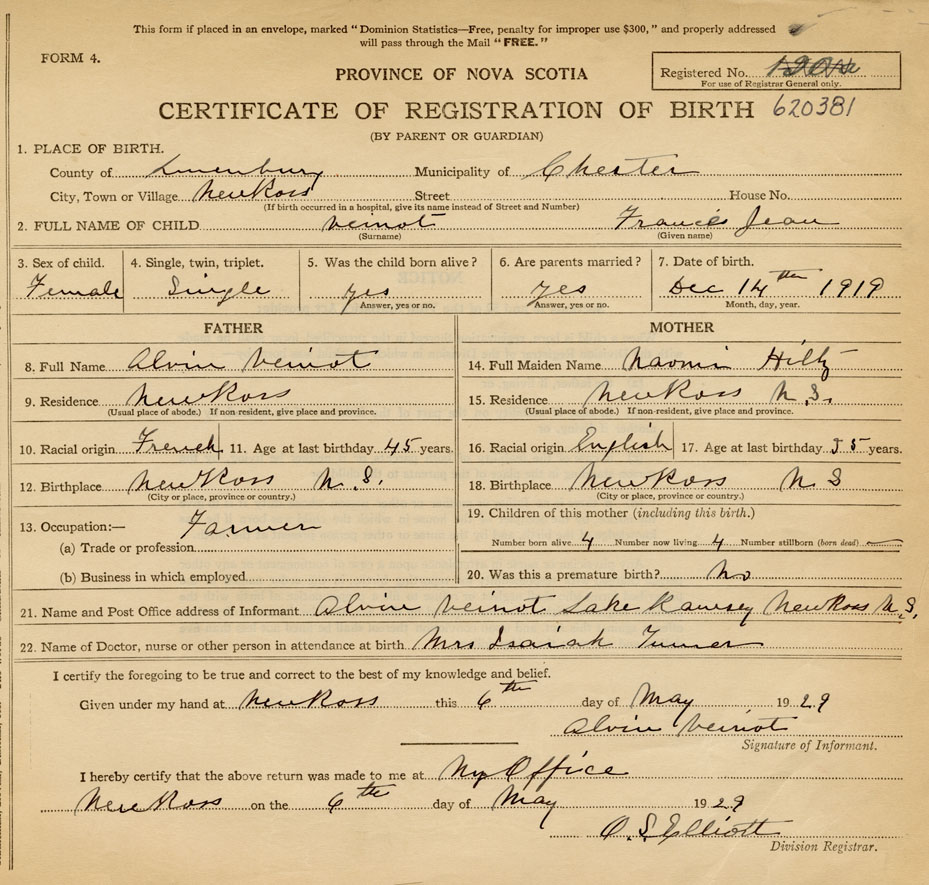 This form if placed in an envelope, marked "Dominion Statistics—Free, penalty for improper use $300," and properly addressed
will pass through the Mail "FREE."
FORM 4.
PROVINCE OF NOVA SCOTIA
Registered No.
For use of Registrar General only.
CERTIFICATE OF REGISTRATION OF BIRTH 620381
(BY PARENT OR GUARDIAN)
1. PLACE OF BIRTH.
County of Lunenburg Municipality of Chester
City, Town or Village New Ross Street House No.
(If birth occurred in a hospital, give its name instead of Street and Number)
2. FULL NAME OF CHILD Veinot Francis Jean
(Surname) (Given name)
3. Sex of child. 4. Single, twin, triplet. 5. Was the child born alive? 6. Are parents married? 7. Date of birth.
Female Single yes yes Dec 14th 1919
Answer, yes or no. Answer, yes or no. Month, day, year.
FATHER MOTHER
8. Full Name Alvin Veinot 14. Full Maiden Name Naomi Hiltz
9. Residence New Ross 15. Residence New Ross N.S.
(Usual place of abode.) If non-resident, give place and province. (Usual place of abode.) If non-resident, give place and province.
10. Racial origin French 11. Age at last birthday 45 years. 16. Racial origin English 17. Age at last birthday 35 years.
12. Birthplace New Ross N.S. 18. Birthplace New Ross N S
(City or place, province or country.) (City or place, province or country.)
13. Occupation:— Farmer 19. Children of this mother (including this birth.)
(a) Trade or profession Number born alive 4 Number now living 4 Number stillborn (born dead) —
(b) Business in which employed 20. Was this a premature birth? No
21. Name and Post Office address of Informant Alvin Veinot Lake Ramsey New Ross N.S.
22. Name of Doctor, nurse or other person in attendance at birth Mrs Isaiah Turner
I certify the foregoing to be true and correct to the best of my knowledge and belief.
Given under my hand at New Ross this 6th day of May 1929
Alvin Veinot
Signature of Informant.
I hereby certify that the above return was made to me at My Office
New Ross on the 6th day of May 1929
O. S. Elliott
Division Registrar.